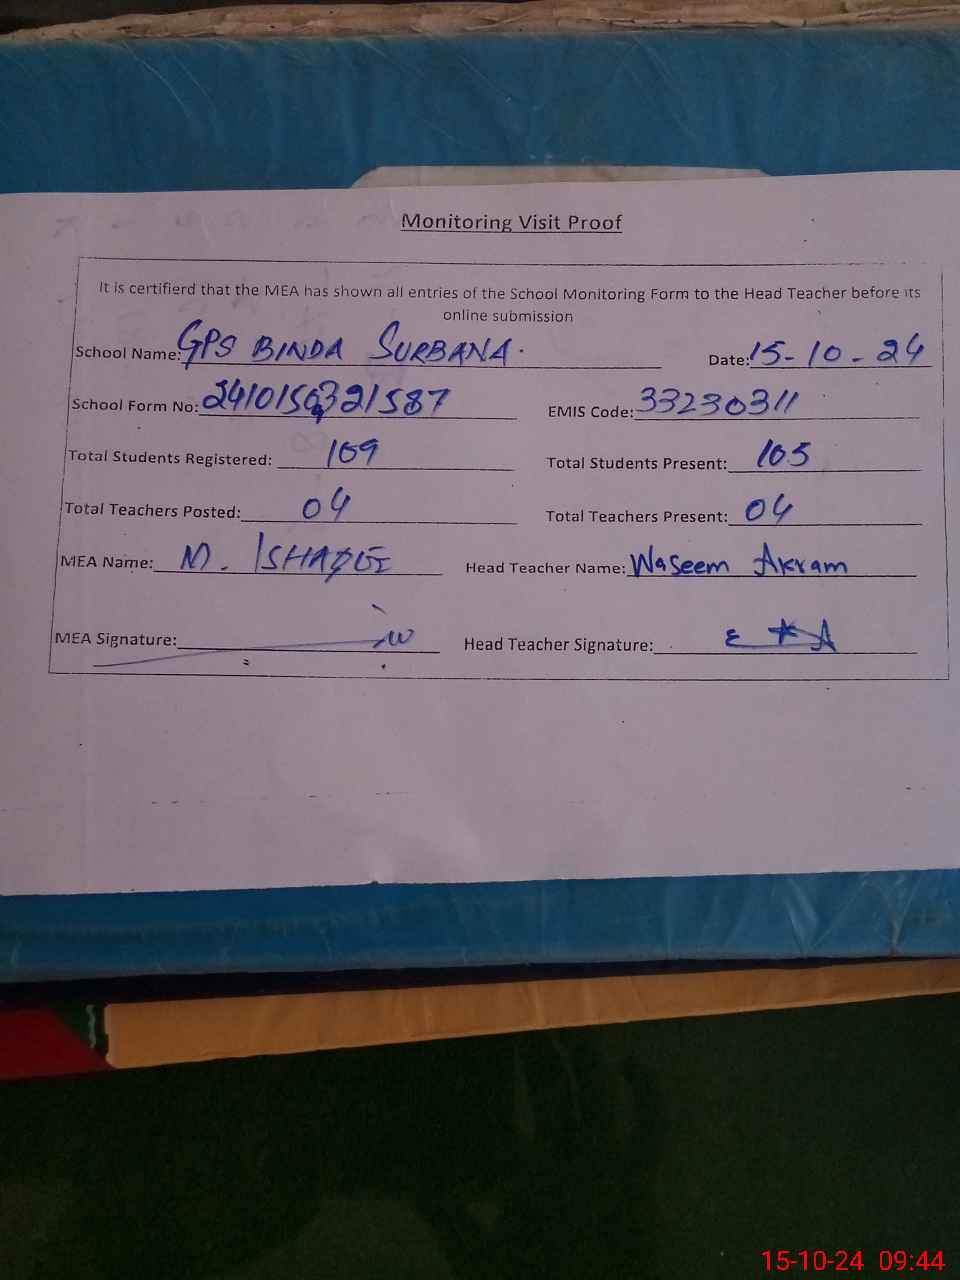 Monitoring Visit Proof
It is certifierd that the MEA has shown all entries of the School Monitoring Form to the Head Teacher before its
online submission
School Name: GPS BINDA SURBANA. Date: 15-10-24
School Form No: EMIS Code: 33230311
Total Students Registered: 109 Total Students Present: 105
Total Teachers Posted: 04 Total Teachers Present: 04
MEA Name: M. ISHAQUE Head Teacher Name: Waseem Akram
MEA Signature: Head Teacher Signature:
15-10-24 09:44